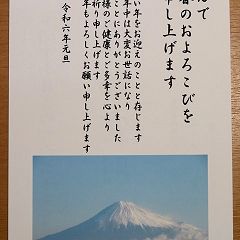 んで
春のおよろこびを
申し上げます
い年をお迎えのことと存じます
年中は大変お世話になり
ことにありがとうございました
様のご健康とご多幸を心より
祈り申し上げます
年もよろしくお願い申し上げます
令和六年元旦